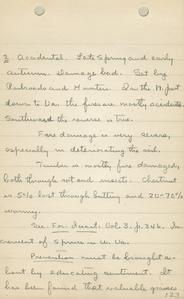 3 Accidental. Late Spring and early
autumn. Damage bad. Set by
Railroads and Hunters. In the N. part
down to Va. the fires are mostly accidental.
Southward the reverse is true.
Fire damage is very severe,
especially in deteriorating the soil.
Timber is mostly fire damaged,
both through rot and insects. Chestnut
is 5% lost through butting and 20-70%
wormy.
See. For. Quart. Vol. 3. p. 346. In-
crement of Spruce in W. Va.
Prevention must be brought a-
bout by educating sentiment. It
has been found that valuable grasses